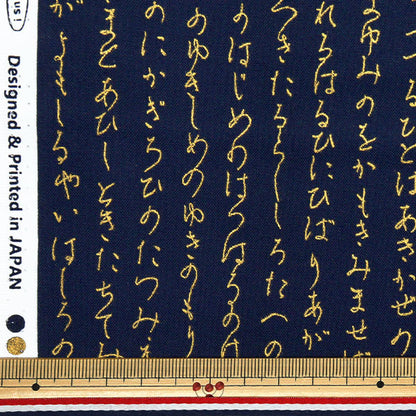 あきかぜの
まゆみのをかもきみませば
れるはるひにひばりあが
つきたるらししろたへの
のはじめのはつはるのけ
のゆきしめのゆきのもり
のにかぎろひのたつみえ
まとあひしときたちてみ
がよもしるやいはしろの
us!
Designed & Printed in JAPAN